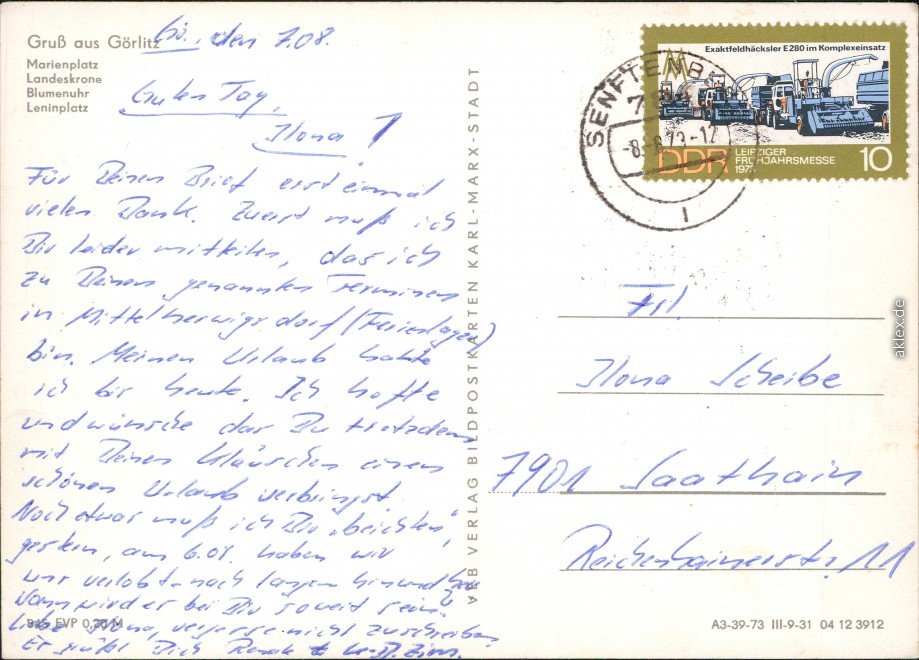 Gruß aus Görlitz
Marienplatz
Landeskrone
Blumenuhr
Leninplatz
Gö., den 7.08.
Guten Tag,
Ilona!
Für Deinen Brief erst einmal
vielen Dank. Zuerst muß ich
Dir leider mitteilen, das ich
zu Deinen genannten Terminen
in Mittelherwigsdorf (Ferienlager)
bin. Meinen Urlaub hatte
ich bis heute. Ich hoffe
und wünsche das Du trotzdem
mit Deinen Kläuschen einen
schönen Urlaub verbringst.
Noch etwas muß ich Dir "beichten",
gestern, am 6.08. haben wir
uns verlobt - nach langem hin und her
Wann wird es bei Dir soweit sein?
Liebe Ilona, vergesse nicht zu schreiben
Es grüßt Dich
945 EVP 0,20 M
VEB VERLAG BILDPOSTKARTEN KARL-MARX-STADT
Exaktfeldhäcksler E 280 im Komplexeinsatz
MM
DDR
LEIPZIGER
FRÜHJAHRSMESSE
10
SENFTENB
Frl.
Ilona Scheibe
7901 Saathain
Reichenhainerstr. 11
A3-39-73 III-9-31 04 12 3912
aklex.de